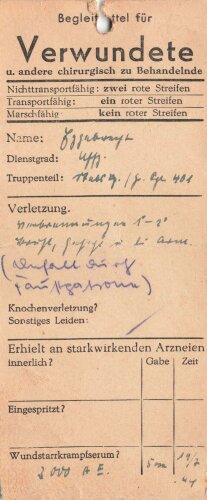 Begleitzettel für
Verwundete
u. andere chirurgisch zu Behandelnde
Nichttransportfähig: zwei rote Streifen
Transportfähig: ein roter Streifen
Marschfähig kein roter Streifen
Name:
Dienstgrad: Uffz.
Truppenteil:
Verletzung.
Verbrennungen 1-2°
(Unfall durch
Knochenverletzung?
Sonstiges Leiden:
Erhielt an starkwirkenden Arzneien
innerlich? Gabe Zeit
Eingespritzt?
Wundstarrkrampfserum?
3000 A.E.